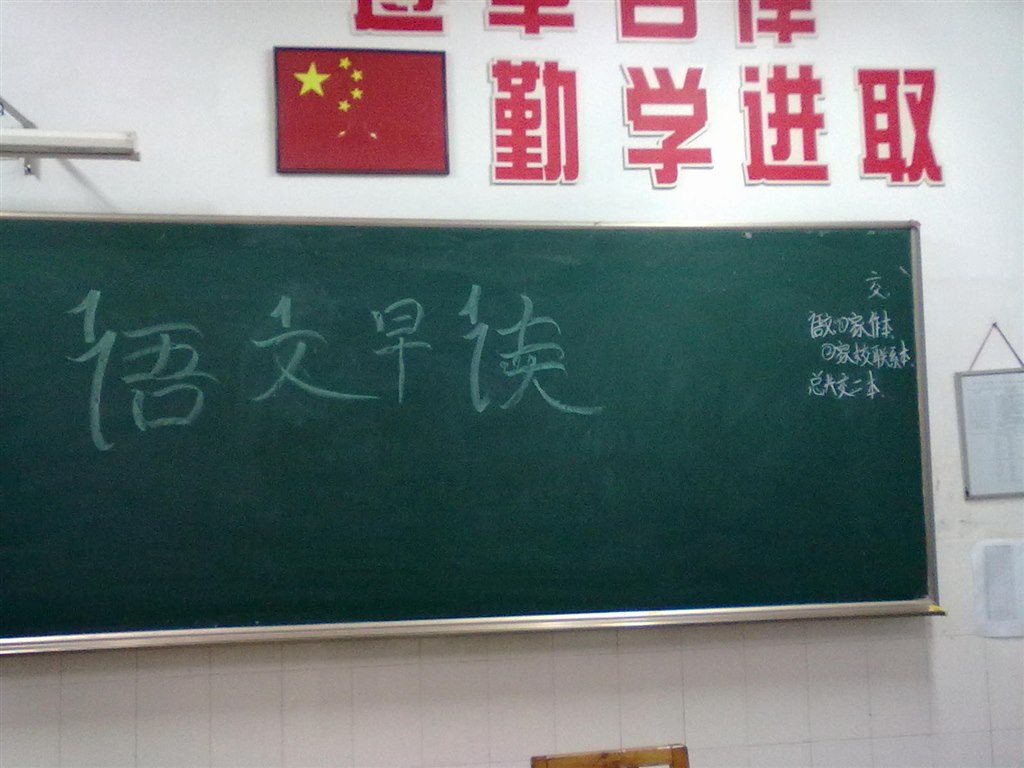 勤学进取
语文早读
交
做①家作本
②家校联系本
总共交二本